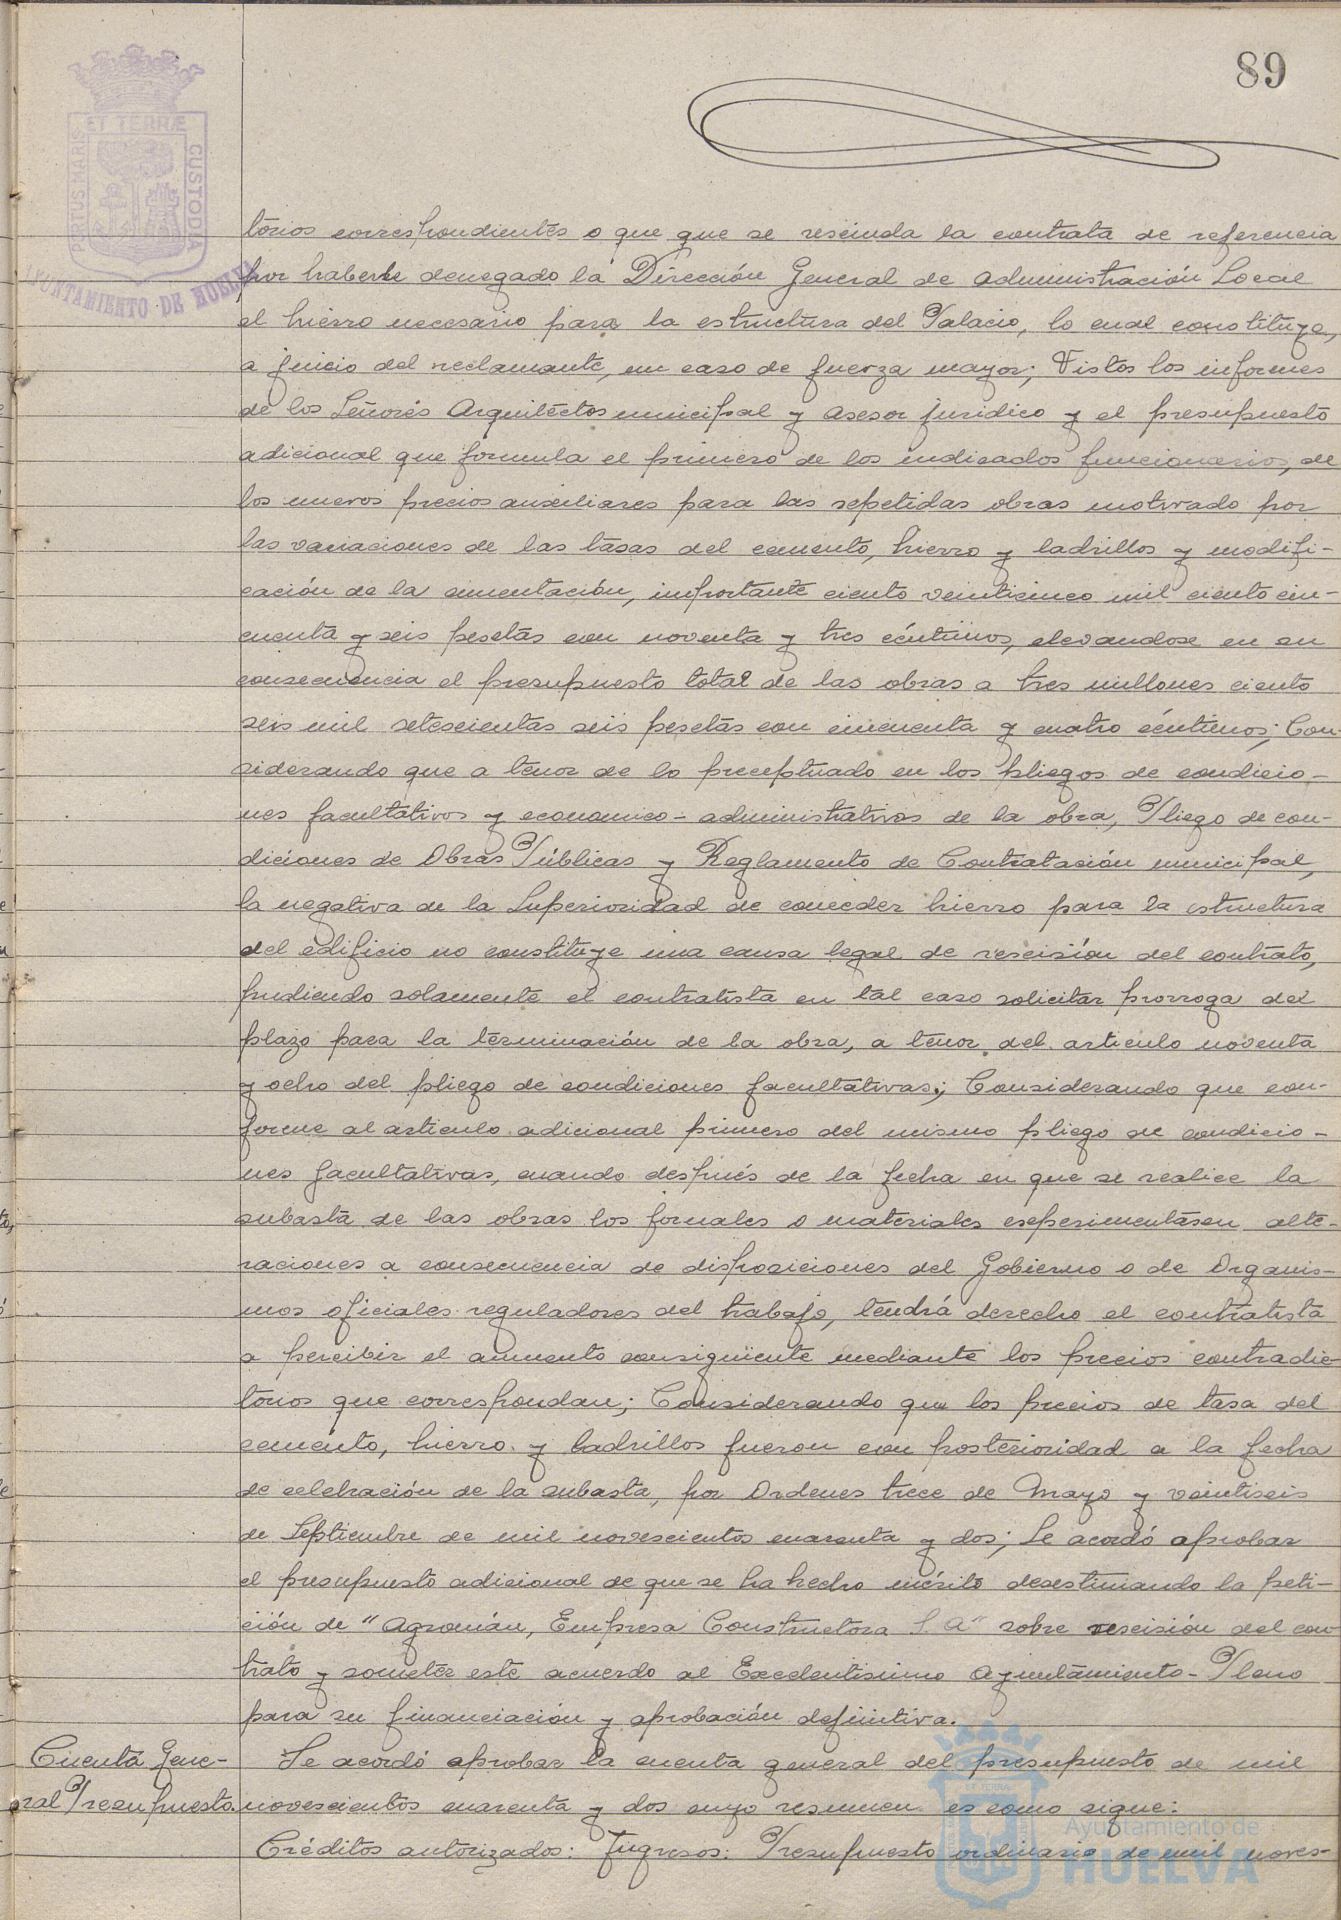 89
PORTUS MARIS ET TERRÆ CUSTODIA
AYUNTAMIENTO DE HUELVA
torios correspondientes o que que se rescinda la contrata de referencia
por haberle denegado la Dirección General de Administración Local
el hierro necesario para la estructura del Palacio, lo cual constituye,
a juicio del reclamante, un caso de fuerza mayor; Vistos los informes
de los Señores Arquitectos municipal y asesor jurídico y el presupuesto
adicional que formula el primero de los indicados funcionarios, de
los nuevos precios auxiliares para las repetidas obras motivado por
las variaciones de las tasas del cemento, hierro y ladrillos y modifi-
cación de la cimentación, importante ciento veinticinco mil ciento cin-
cuenta y seis pesetas con noventa y tres céntimos, elevandose en su
consecuencia el presupuesto total de las obras a tres millones ciento
seis mil setescientas seis pesetas con cincuenta y cuatro céntimos; Con-
siderando que a tenor de lo preceptuado en los pliegos de condicio-
nes facultativos y economico-administrativas de la obra, Pliego de con-
diciones de Obras Públicas y Reglamento de Contratación municipal,
la negativa de la Superioridad de conceder hierro para la estructura
del edificio no constituye una causa legal de rescisión del contrato,
pudiendo solamente el contratista en tal caso solicitar prorroga del
plazo para la terminación de la obra, a tenor del articulo noventa
y ocho del pliego de condiciones facultativas; Considerando que con-
forme al articulo adicional primero del mismo pliego de condicio-
nes facultativas, cuando después de la fecha en que se realice la
subasta de las obras los jornales o materiales esperimentasen alte-
raciones a consecuencia de disposiciones del Gobierno o de Organis-
mos oficiales reguladores del trabajo, tendrá derecho el contratista
a percibir el aumento consiguiente mediante los precios contradic-
torios que correspondan; Considerando que los precios de tasa del
cemento, hierro y ladrillos fueron con posterioridad a la fecha
de celebración de la subasta, por Ordenes trece de Mayo y veintiseis
de Septiembre de mil novescientos cuarenta y dos; Se acordó aprobar
el presupuesto adicional de que se ha hecho mérito desestimando la peti-
ción de "Agromán, Empresa Constructora S.A" sobre rescisión del con-
trato y someter este acuerdo al Excelentisimo Ayuntamiento-Pleno
para su financiación y aprobación definitiva.
Cuenta Gene-
ral Presupuesto.
Se acordó aprobar la cuenta general del presupuesto de mil
novescientos cuarenta y dos cuyo resumen es como sigue:
Créditos autorizados: Ingresos: Presupuesto ordinario de mil noves-
Ayuntamiento de
HUELVA